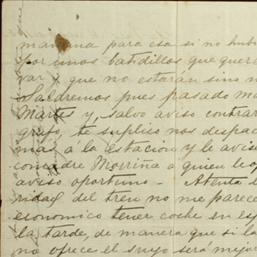 mañana para esa si no hubi
por unos batidillos que quere
var y que no estarán sino m
Saldremos pues pasado ma
Martes y, salvo aviso contrar
grafo, te suplico nos despac
más á la estación y le avise
comadre Morriña á quien le o
aviso oportuno — Atenta l
ridad del tren no me parece
economico tener coche en es
la tarde, de manera que si la
no ofrece el suyo será mejor